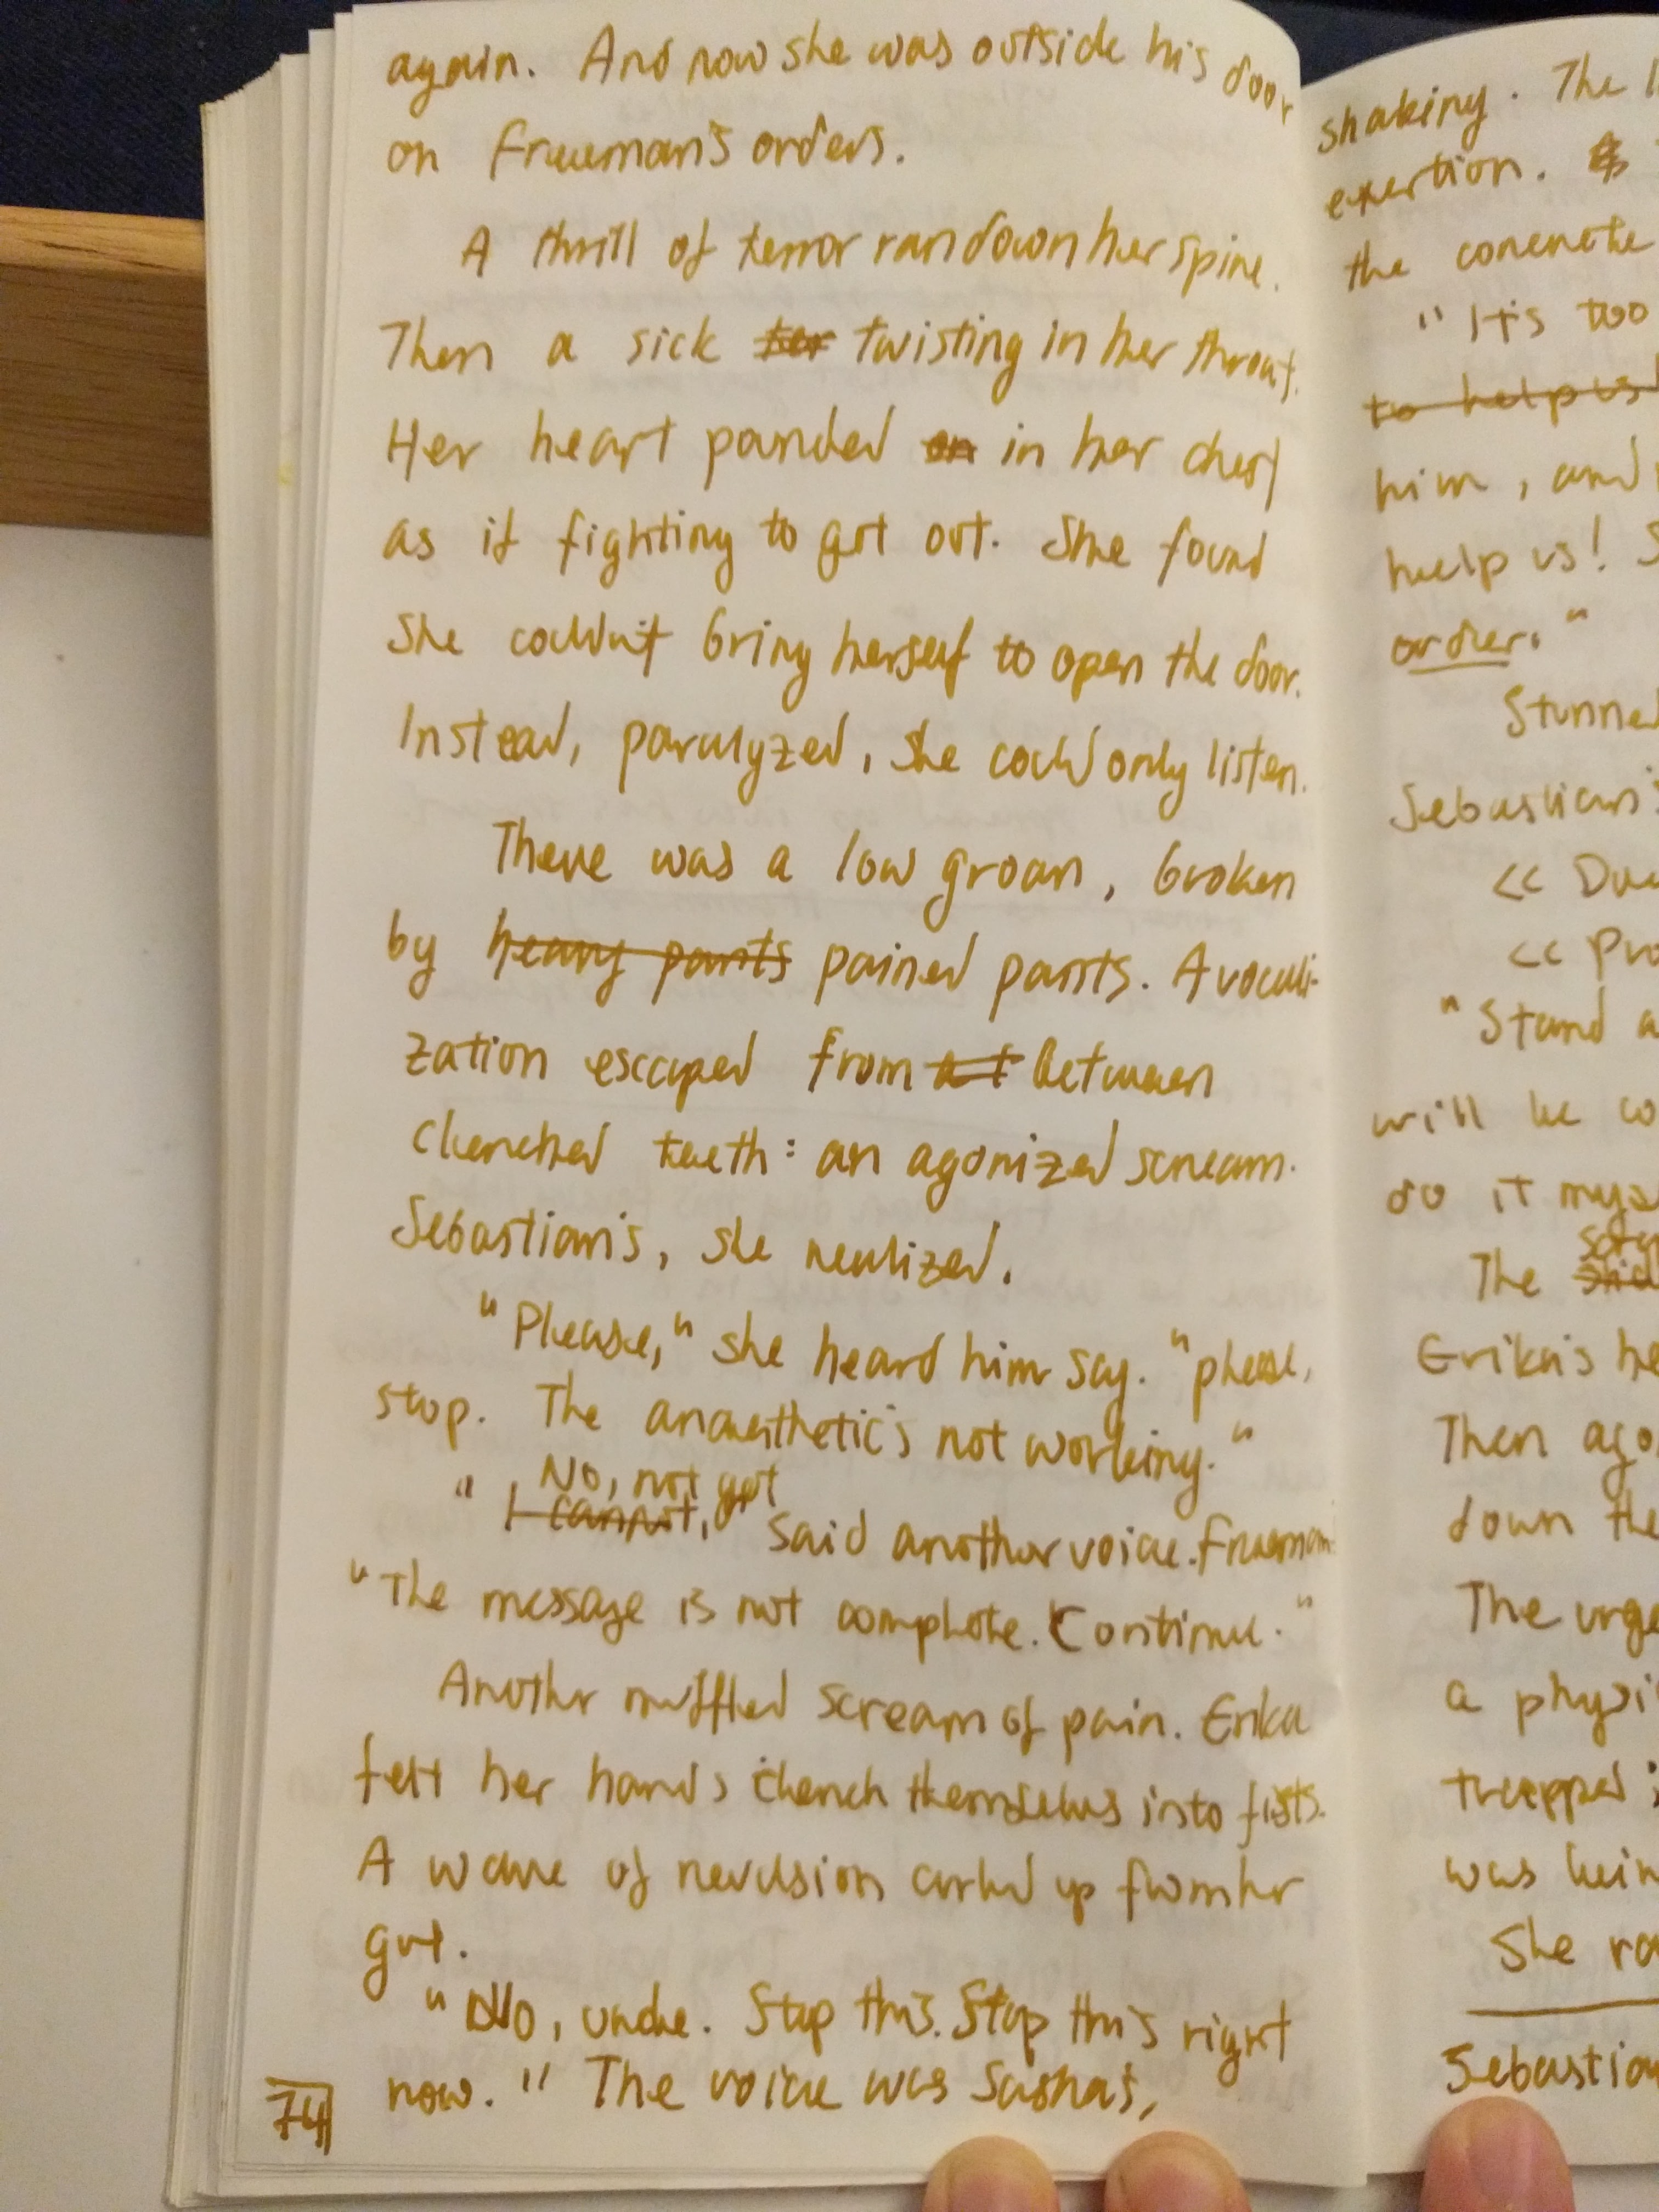 again. And now she was outside his door
on Freeman's orders.
A thrill of terror ran down her spine.
Then a sick twisting in her throat.
Her heart pounded in her chest
as if fighting to get out. She found
she couldn't bring herself to open the door.
Instead, paralyzed, she could only listen.
There was a low groan, broken
by heavy pants pained pants. A vocali-
zation escaped from between
clenched teeth: an agonized scream.
Sebastian's, she realized.
"Please," she heard him say. "please,
stop. The anaesthetic's not working."
No, not yet
"I cannot," said another voice. Freeman.
"The message is not complete. Continue."
Another muffled scream of pain. Erika
felt her hands clench themselves into fists.
A wave of revulsion curled up from her
gut.
"No, uncle. Stop this. Stop this right
now." The voice was Sasha's,
74
shaking. The
exertion.
the concrete
"It's too
to help us
him, and
help us! S
order."
Stunned
Sebastian's
<<
<<
"Stand a
will be co
do it myse
The
Erika's he
Then ago
down the
The urge
a physi
trapped
was bein
She ra
Sebastian